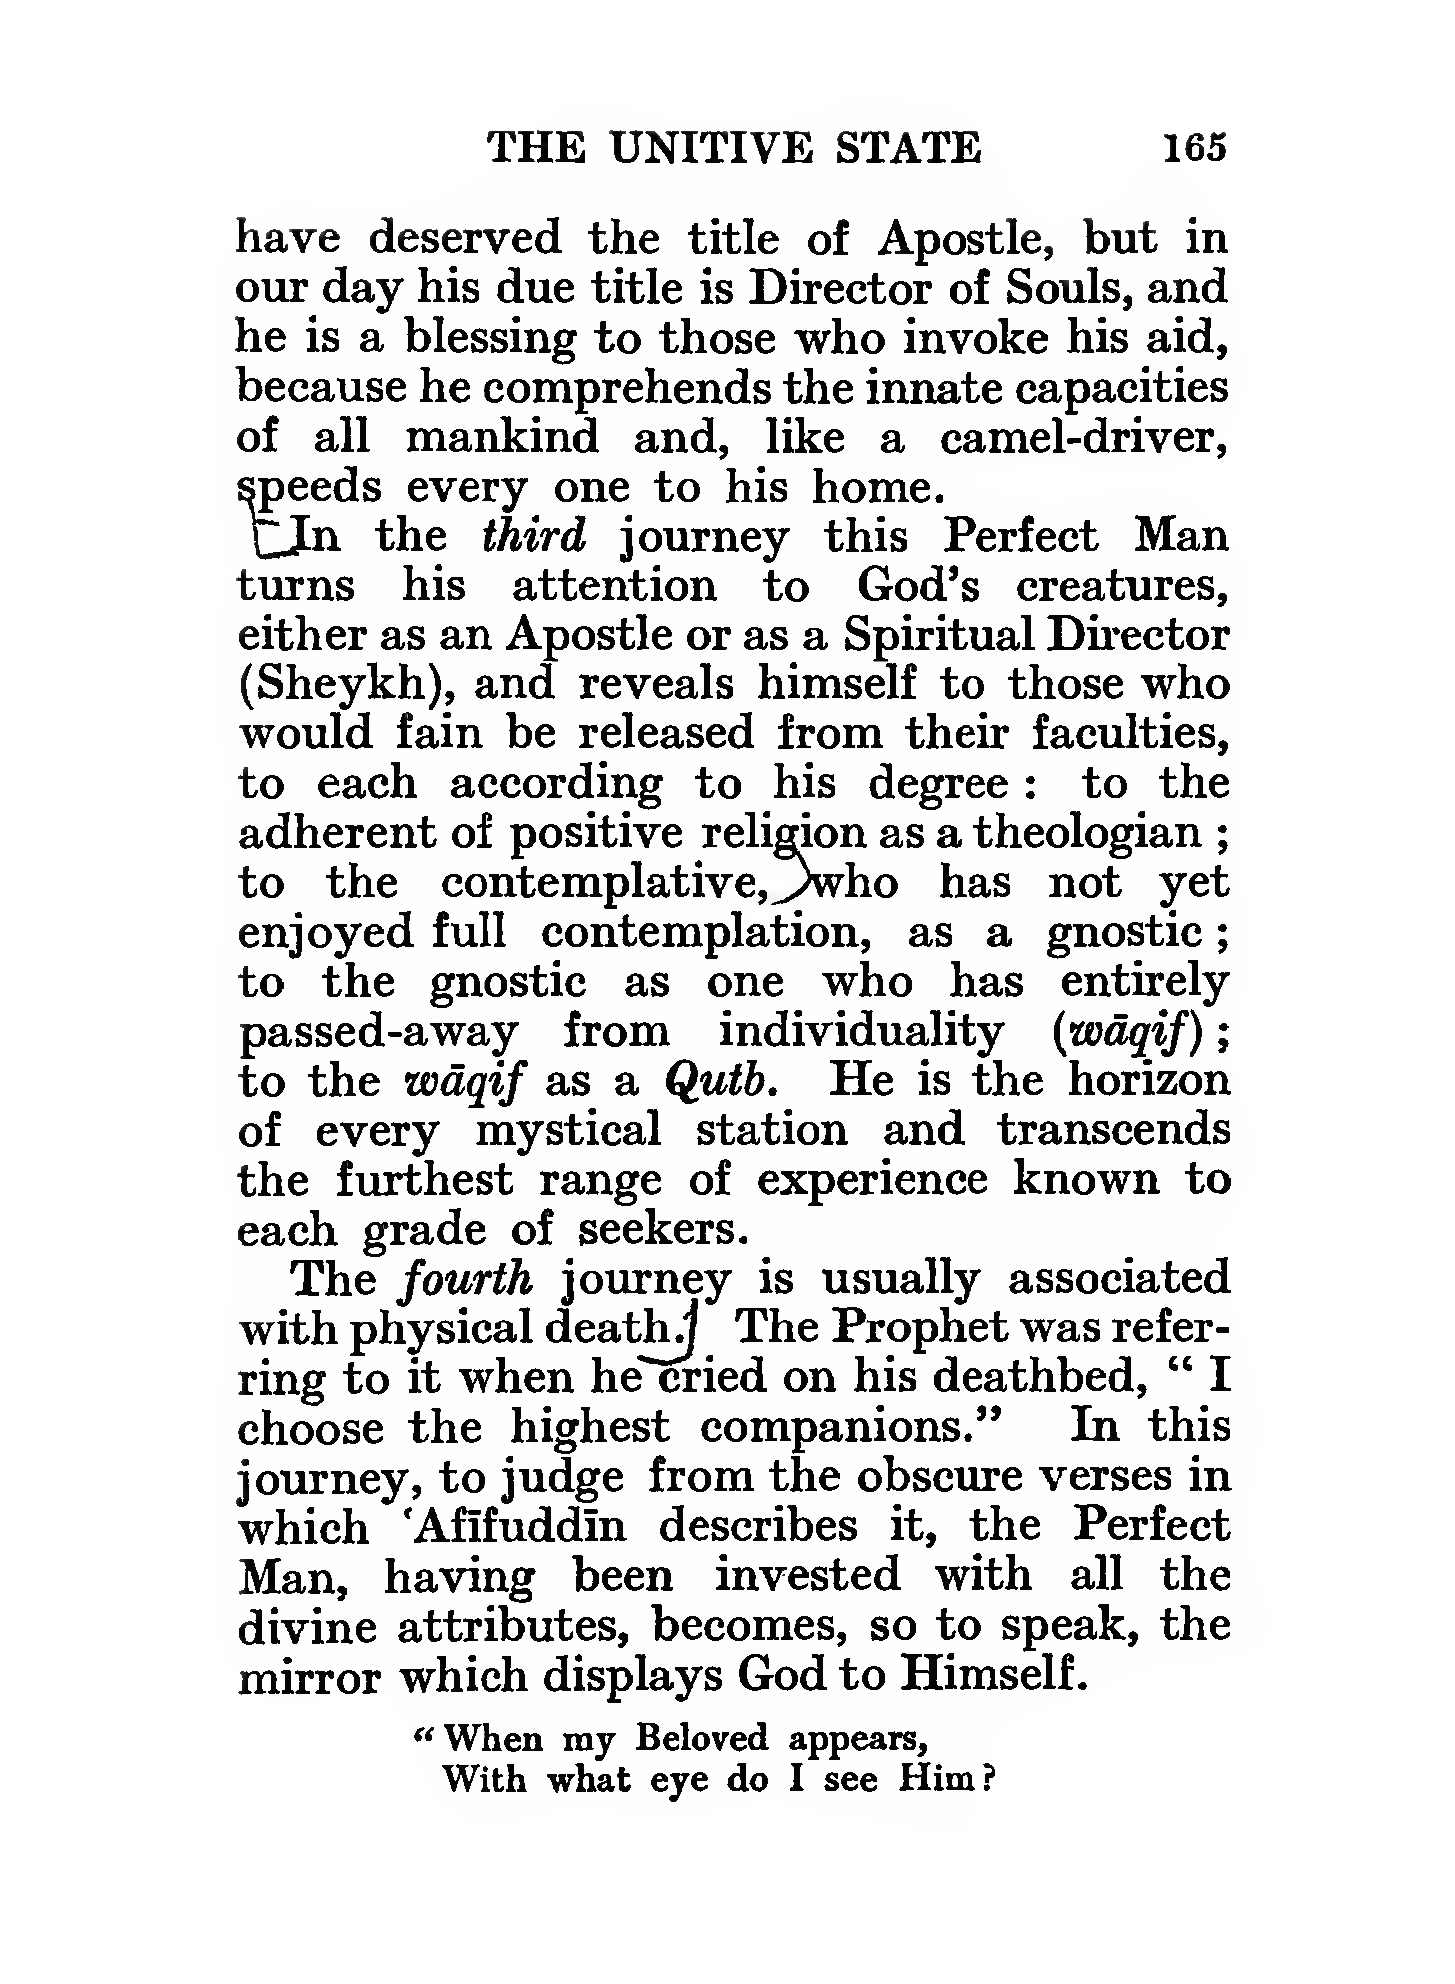 THE UNITIVE STATE 165
have deserved the title of Apostle, but in
our day his due title is Director of Souls, and
he is a blessing to those who invoke his aid,
because he comprehends the innate capacities
of all mankind and, like a camel-driver,
speeds every one to his home.
In the third journey this Perfect Man
turns his attention to God's creatures,
either as an Apostle or as a Spiritual Director
(Sheykh), and reveals himself to those who
would fain be released from their faculties,
to each according to his degree : to the
adherent of positive religion as a theologian ;
to the contemplative, who has not yet
enjoyed full contemplation, as a gnostic ;
to the gnostic as one who has entirely
passed-away from individuality (wāqif) ;
to the wāqif as a Qutb. He is the horizon
of every mystical station and transcends
the furthest range of experience known to
each grade of seekers.
The fourth journey is usually associated
with physical death. The Prophet was refer-
ring to it when he cried on his deathbed, “ I
choose the highest companions.” In this
journey, to judge from the obscure verses in
which ‘Afīfuddīn describes it, the Perfect
Man, having been invested with all the
divine attributes, becomes, so to speak, the
mirror which displays God to Himself.
“ When my Beloved appears,
With what eye do I see Him?